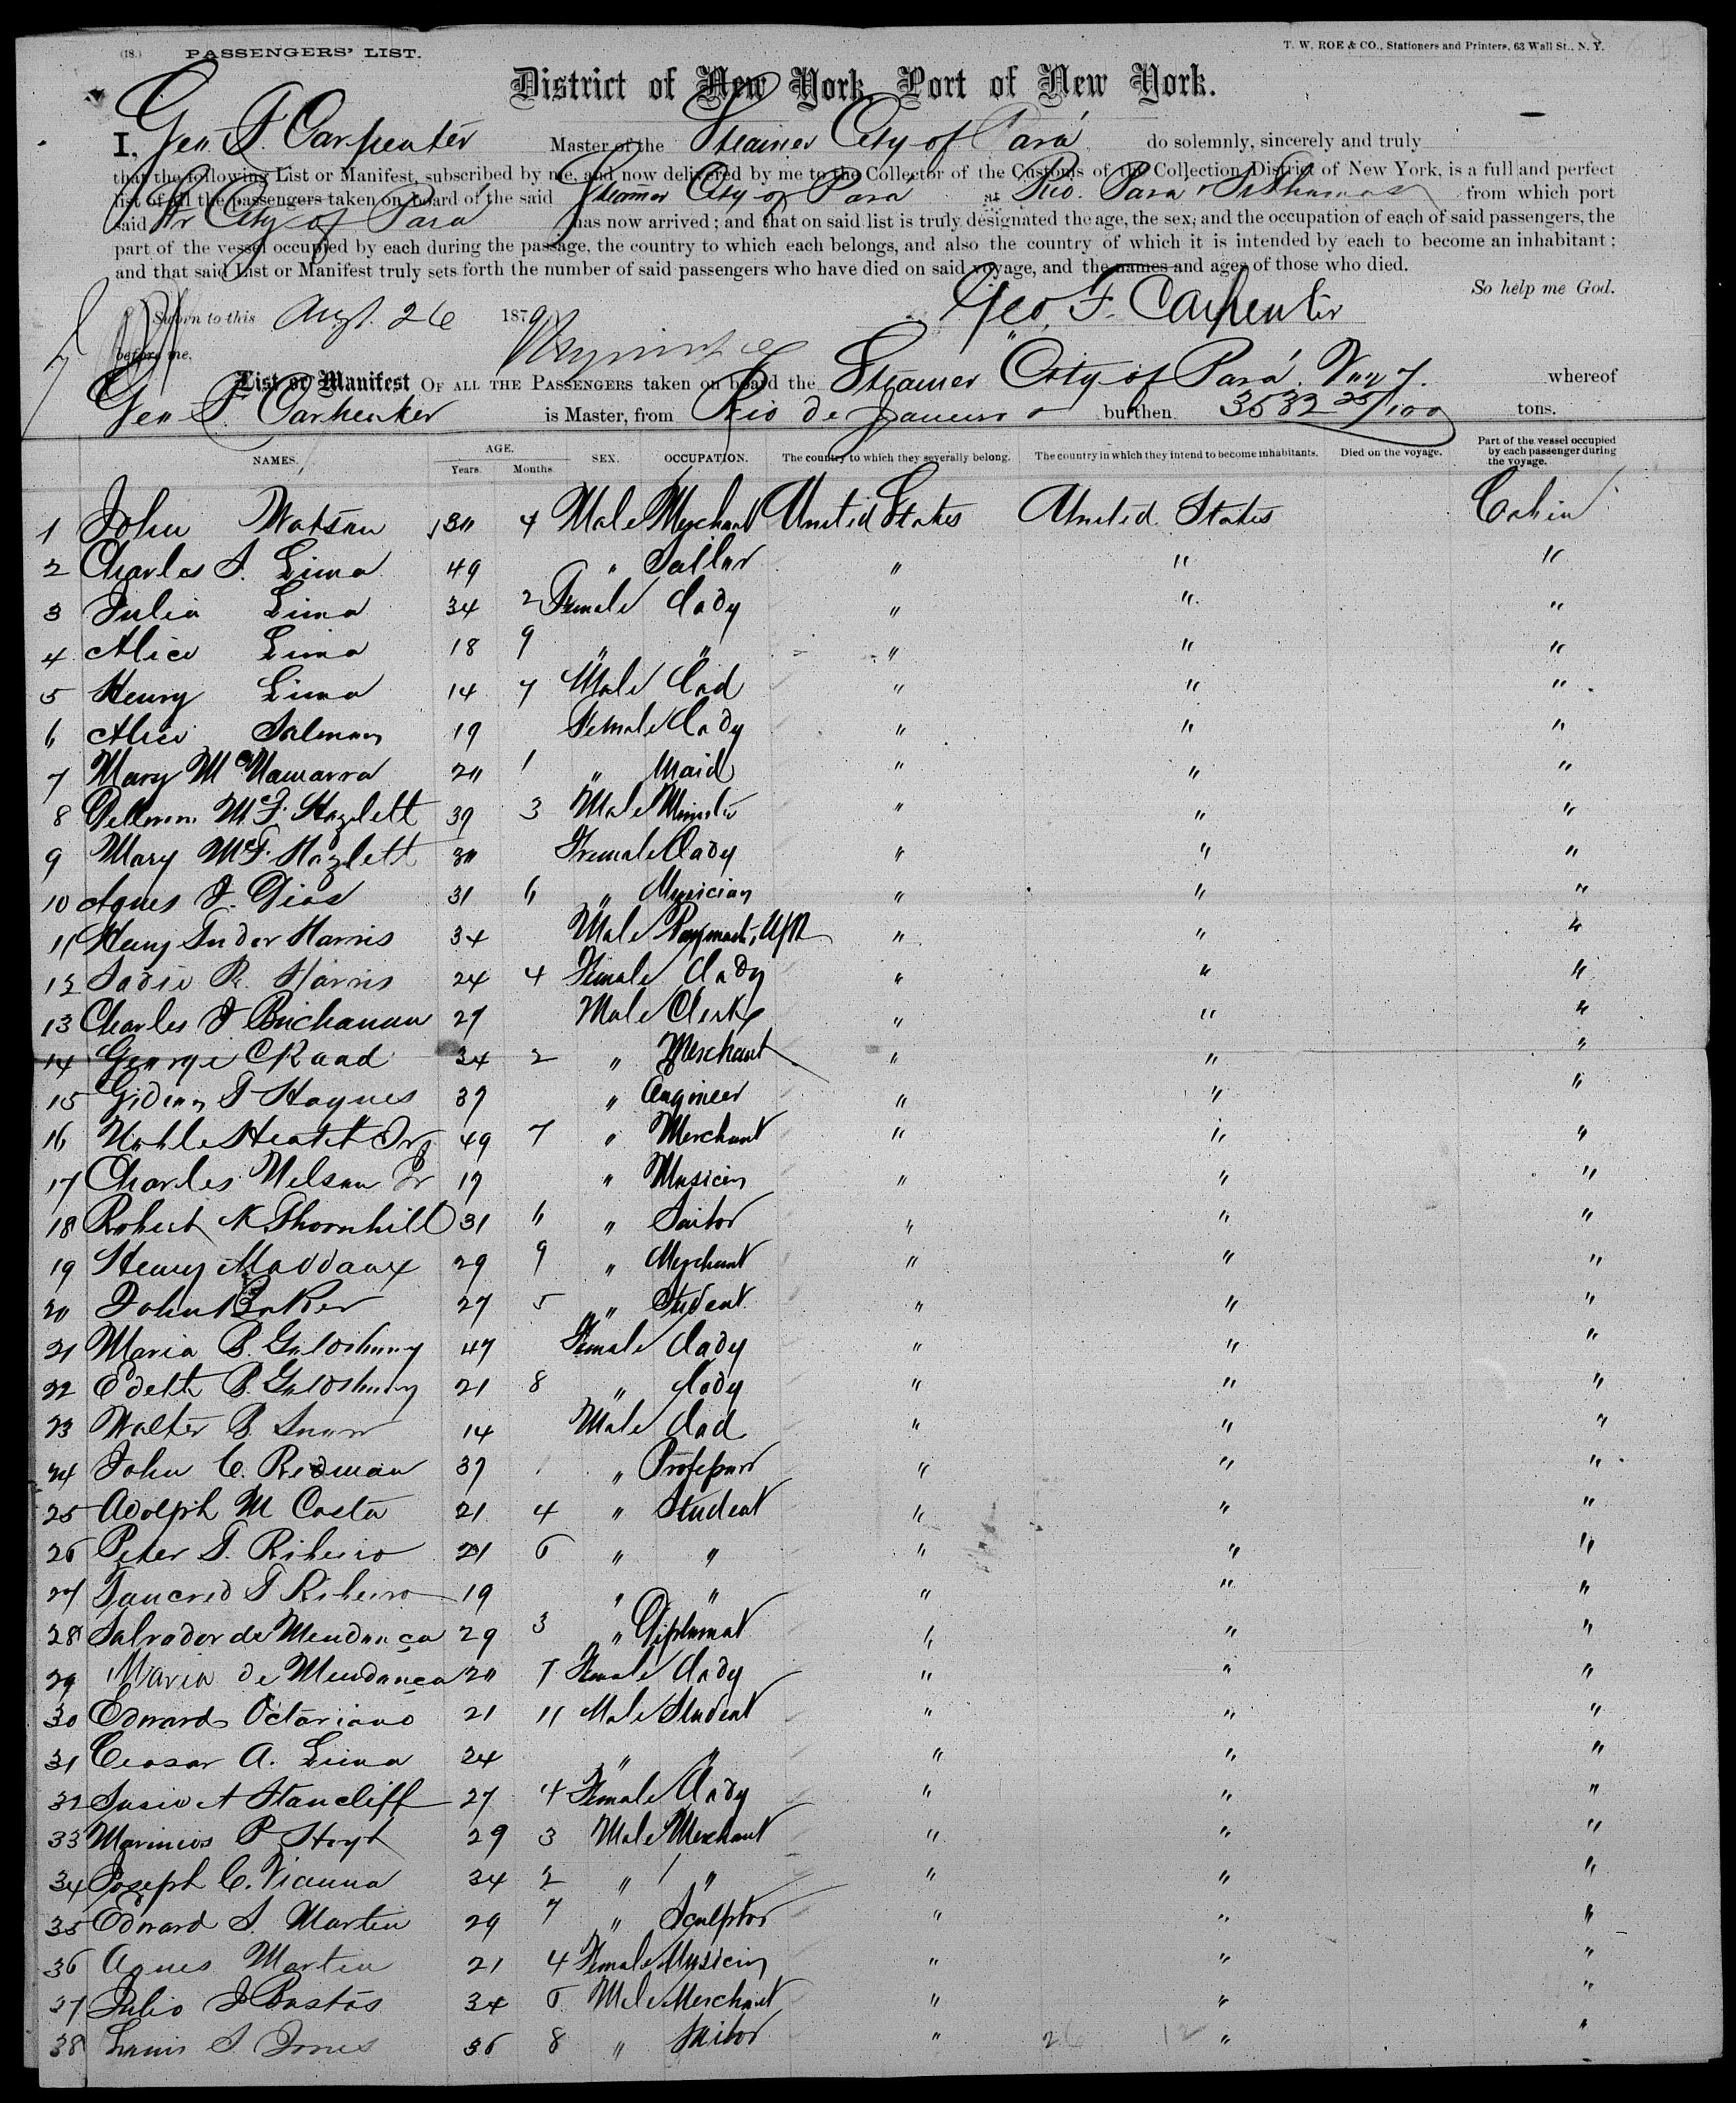 (18.) PASSENGERS' LIST. T. W. ROE & CO., Stationers and Printers, 63 Wall St., N. Y.
District of New York, Port of New York.
I, Geo F. Carpenter Master of the Steamer City of Pará do solemnly, sincerely and truly
that the following List or Manifest, subscribed by me, and now delivered by me to the Collector of the Customs of the Collection District of New York, is a full and perfect
list of all the passengers taken on board of the said Steamer City of Pará at Rio. Pará & St Thomas from which port
said Str City of Pará has now arrived; and that on said list is truly designated the age, the sex, and the occupation of each of said passengers, the
part of the vessel occupied by each during the passage, the country to which each belongs, and also the country of which it is intended by each to become an inhabitant;
and that said List or Manifest truly sets forth the number of said passengers who have died on said voyage, and the names and ages of those who died.
So help me God.
Sworn to this Augt. 26 1879 Geo. F. Carpenter
before me.
List or Manifest OF ALL THE PASSENGERS taken on board the Steamer City of Pará. Voy 7. whereof
Geo F. Carpenter is Master, from Rio de Janeiro burthen 3532 25/100 tons.
NAMES. AGE. Years. Months. SEX. OCCUPATION. The country to which they severally belong. The country in which they intend to become inhabitants. Died on the voyage. Part of the vessel occupied by each passenger during the voyage.
1 John Watson 30 4 Male Merchant United States United States Cabin
2 Charles S. Lima 49 " " " "
3 Julia Lima 34 2 Female Lady " " "
4 Alice Lima 18 9 " " " " "
5 Henry Lima 14 7 Male Lad " " "
6 Alice Salmon 19 Female Lady " " "
7 Mary McNamarra 20 1 " Maid " " "
8 McF. Hazlett 39 3 Male Minister " " "
9 Mary McF. Hazlett 30 Female Lady " " "
10 Agnes J. Dias 31 6 " Musician " " "
11 Henry Tudor Harris 34 Male Paymast, USN " " "
12 Sadie R. Harris 24 4 Female Lady " " "
13 Charles J Buchanan 27 Male Clerk " " "
14 George C Raad 34 2 " Merchant " " "
15 Gideon T Haynes 37 " Engineer " " "
16 Noble Heath Jr 49 7 " Merchant " " "
17 Charles Nelson Jr 19 " Musician " " "
18 Robert K Thornhill 31 6 " " " "
19 Henry Maddaux 29 9 " Merchant " " "
20 John Baker 27 5 " Student " " "
21 Maria B. Goldsbury 47 Female Lady " " "
22 Edith B. Goldsbury 21 8 " Lady " " "
23 Walter B. Snow 14 Male Lad " " "
24 John C. Redman 37 " Professor " " "
25 Adolph M Costa 21 4 " Student " " "
26 Peter T. Ribeiro 21 6 " " " " "
27 Tancred T Ribeiro 19 " " " " "
28 Salvador de Mendonça 29 3 " Diplomat " " "
29 Maria de Mendonça 20 7 Female Lady " " "
30 Edward Octaviano 21 11 Male Student " " "
31 Ceasar A. Lima 24 " " " " "
32 Susie A Stancliff 27 4 Female Lady " " "
33 P Hoyt 29 3 Male Merchant " " "
34 Joseph C. Vianna 34 2 " " " " "
35 Edward S. Martin 29 7 " Sculptor " " "
36 Agnes Martin 21 4 Female Musician " " "
37 Julio J Bastos 34 6 Male Merchant " " "
38 Louis S Jones 36 8 " " " "
26 12